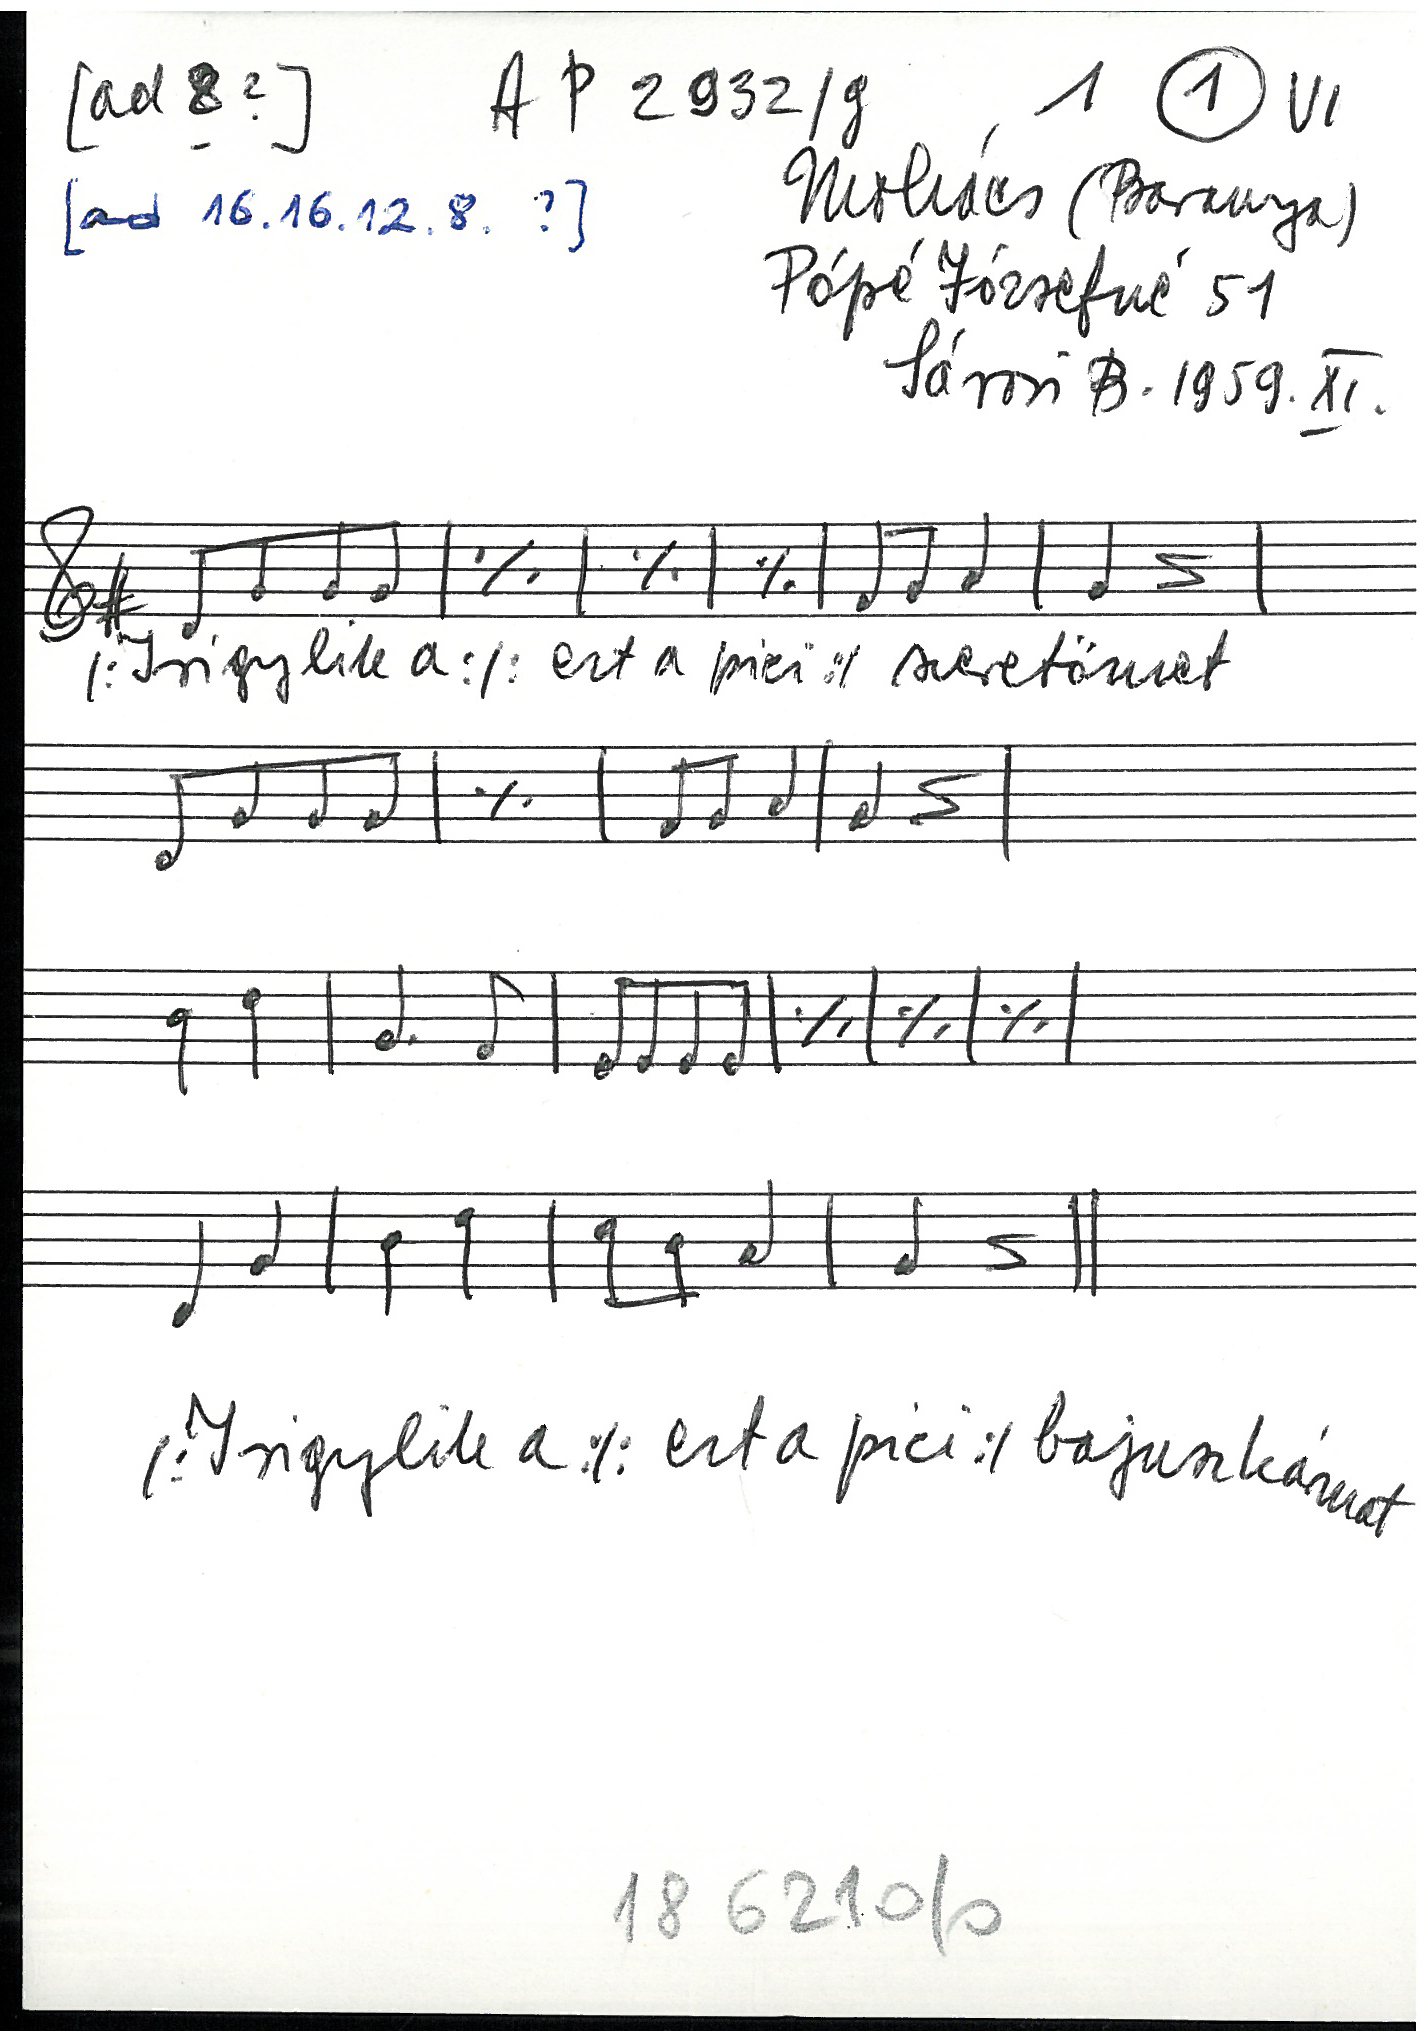 [ad 8 ?] AP 2932/g 1 1 VI
[ad 16.16.12.8. ?] Mohács (Baranya)
Pópé Józsefné 51
Sárosi B. 1959. XI.
/: Irigylik a :/: ezt a pici :/ szeretőmet
/: Irigylik a :/: ezt a pici :/ bajuszkámat
18 6210/0